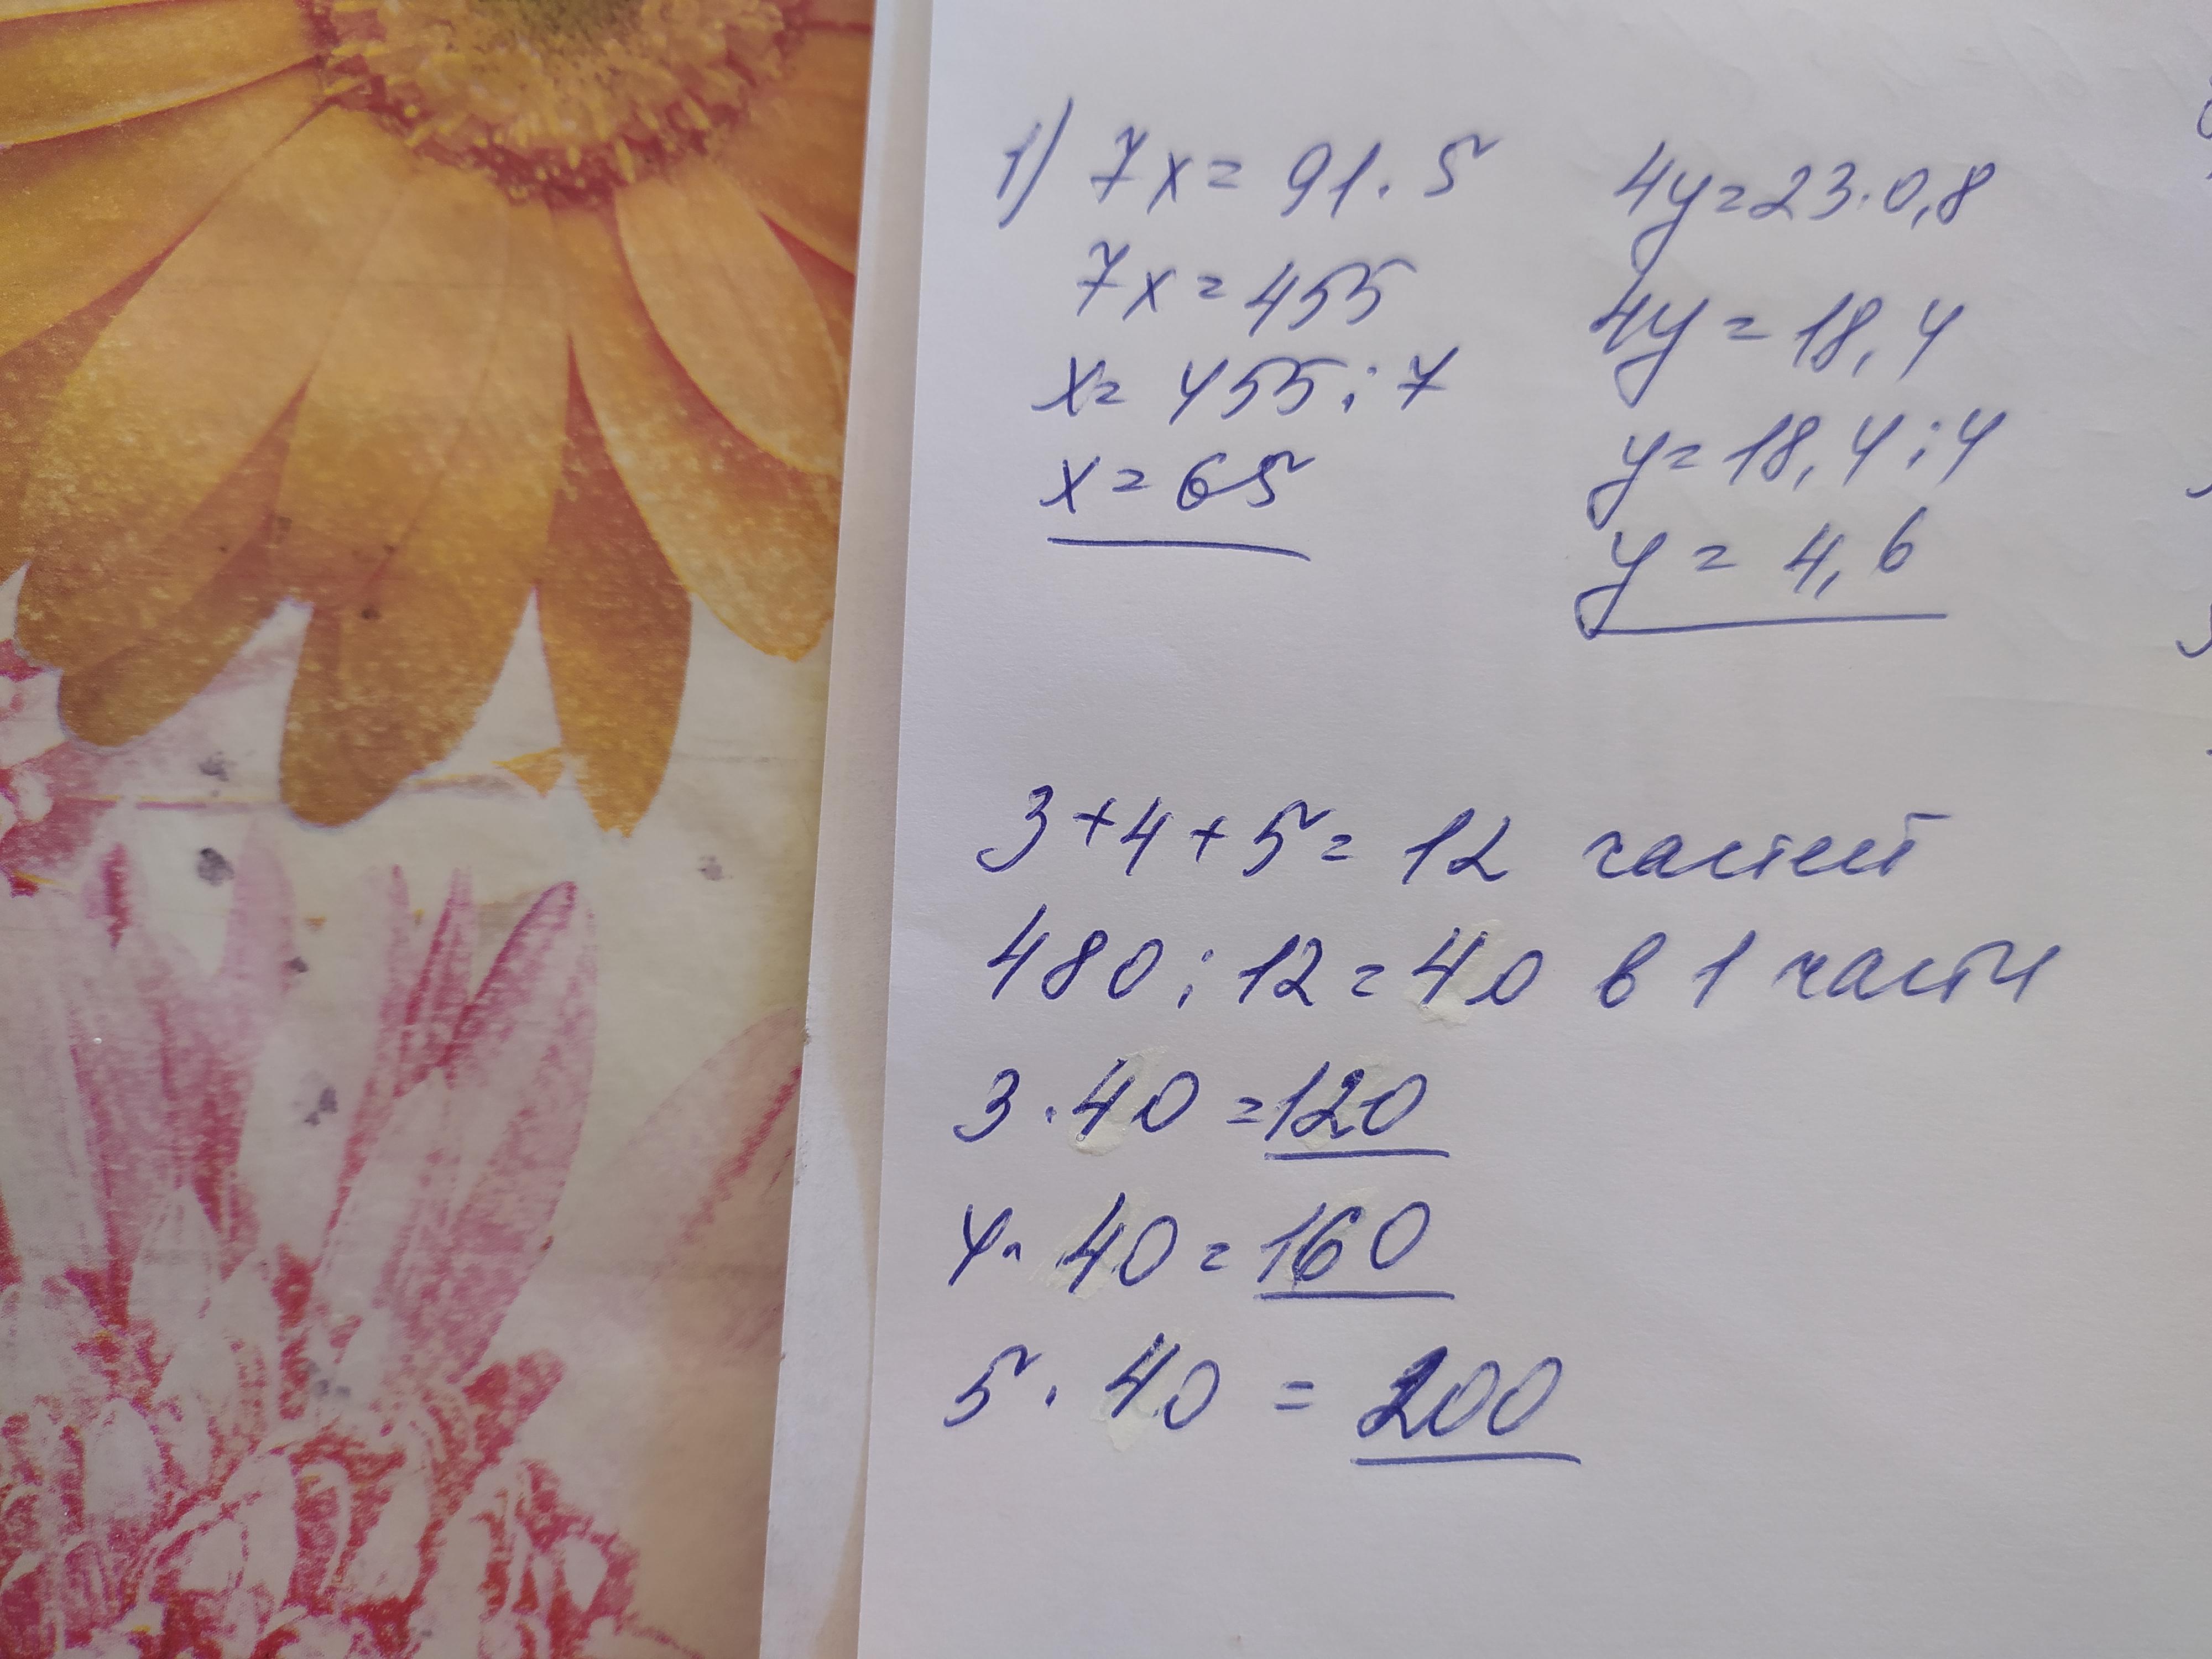 1) 7x = 91 · 5
7x = 455
x = 455 : 7
x = 65
4y = 23 · 0,8
4y = 18,4
y = 18,4 : 4
y = 4,6
3 + 4 + 5 = 12 частей
480 : 12 = 40 в 1 части
3 · 40 = 120
4 · 40 = 160
5 · 40 = 200